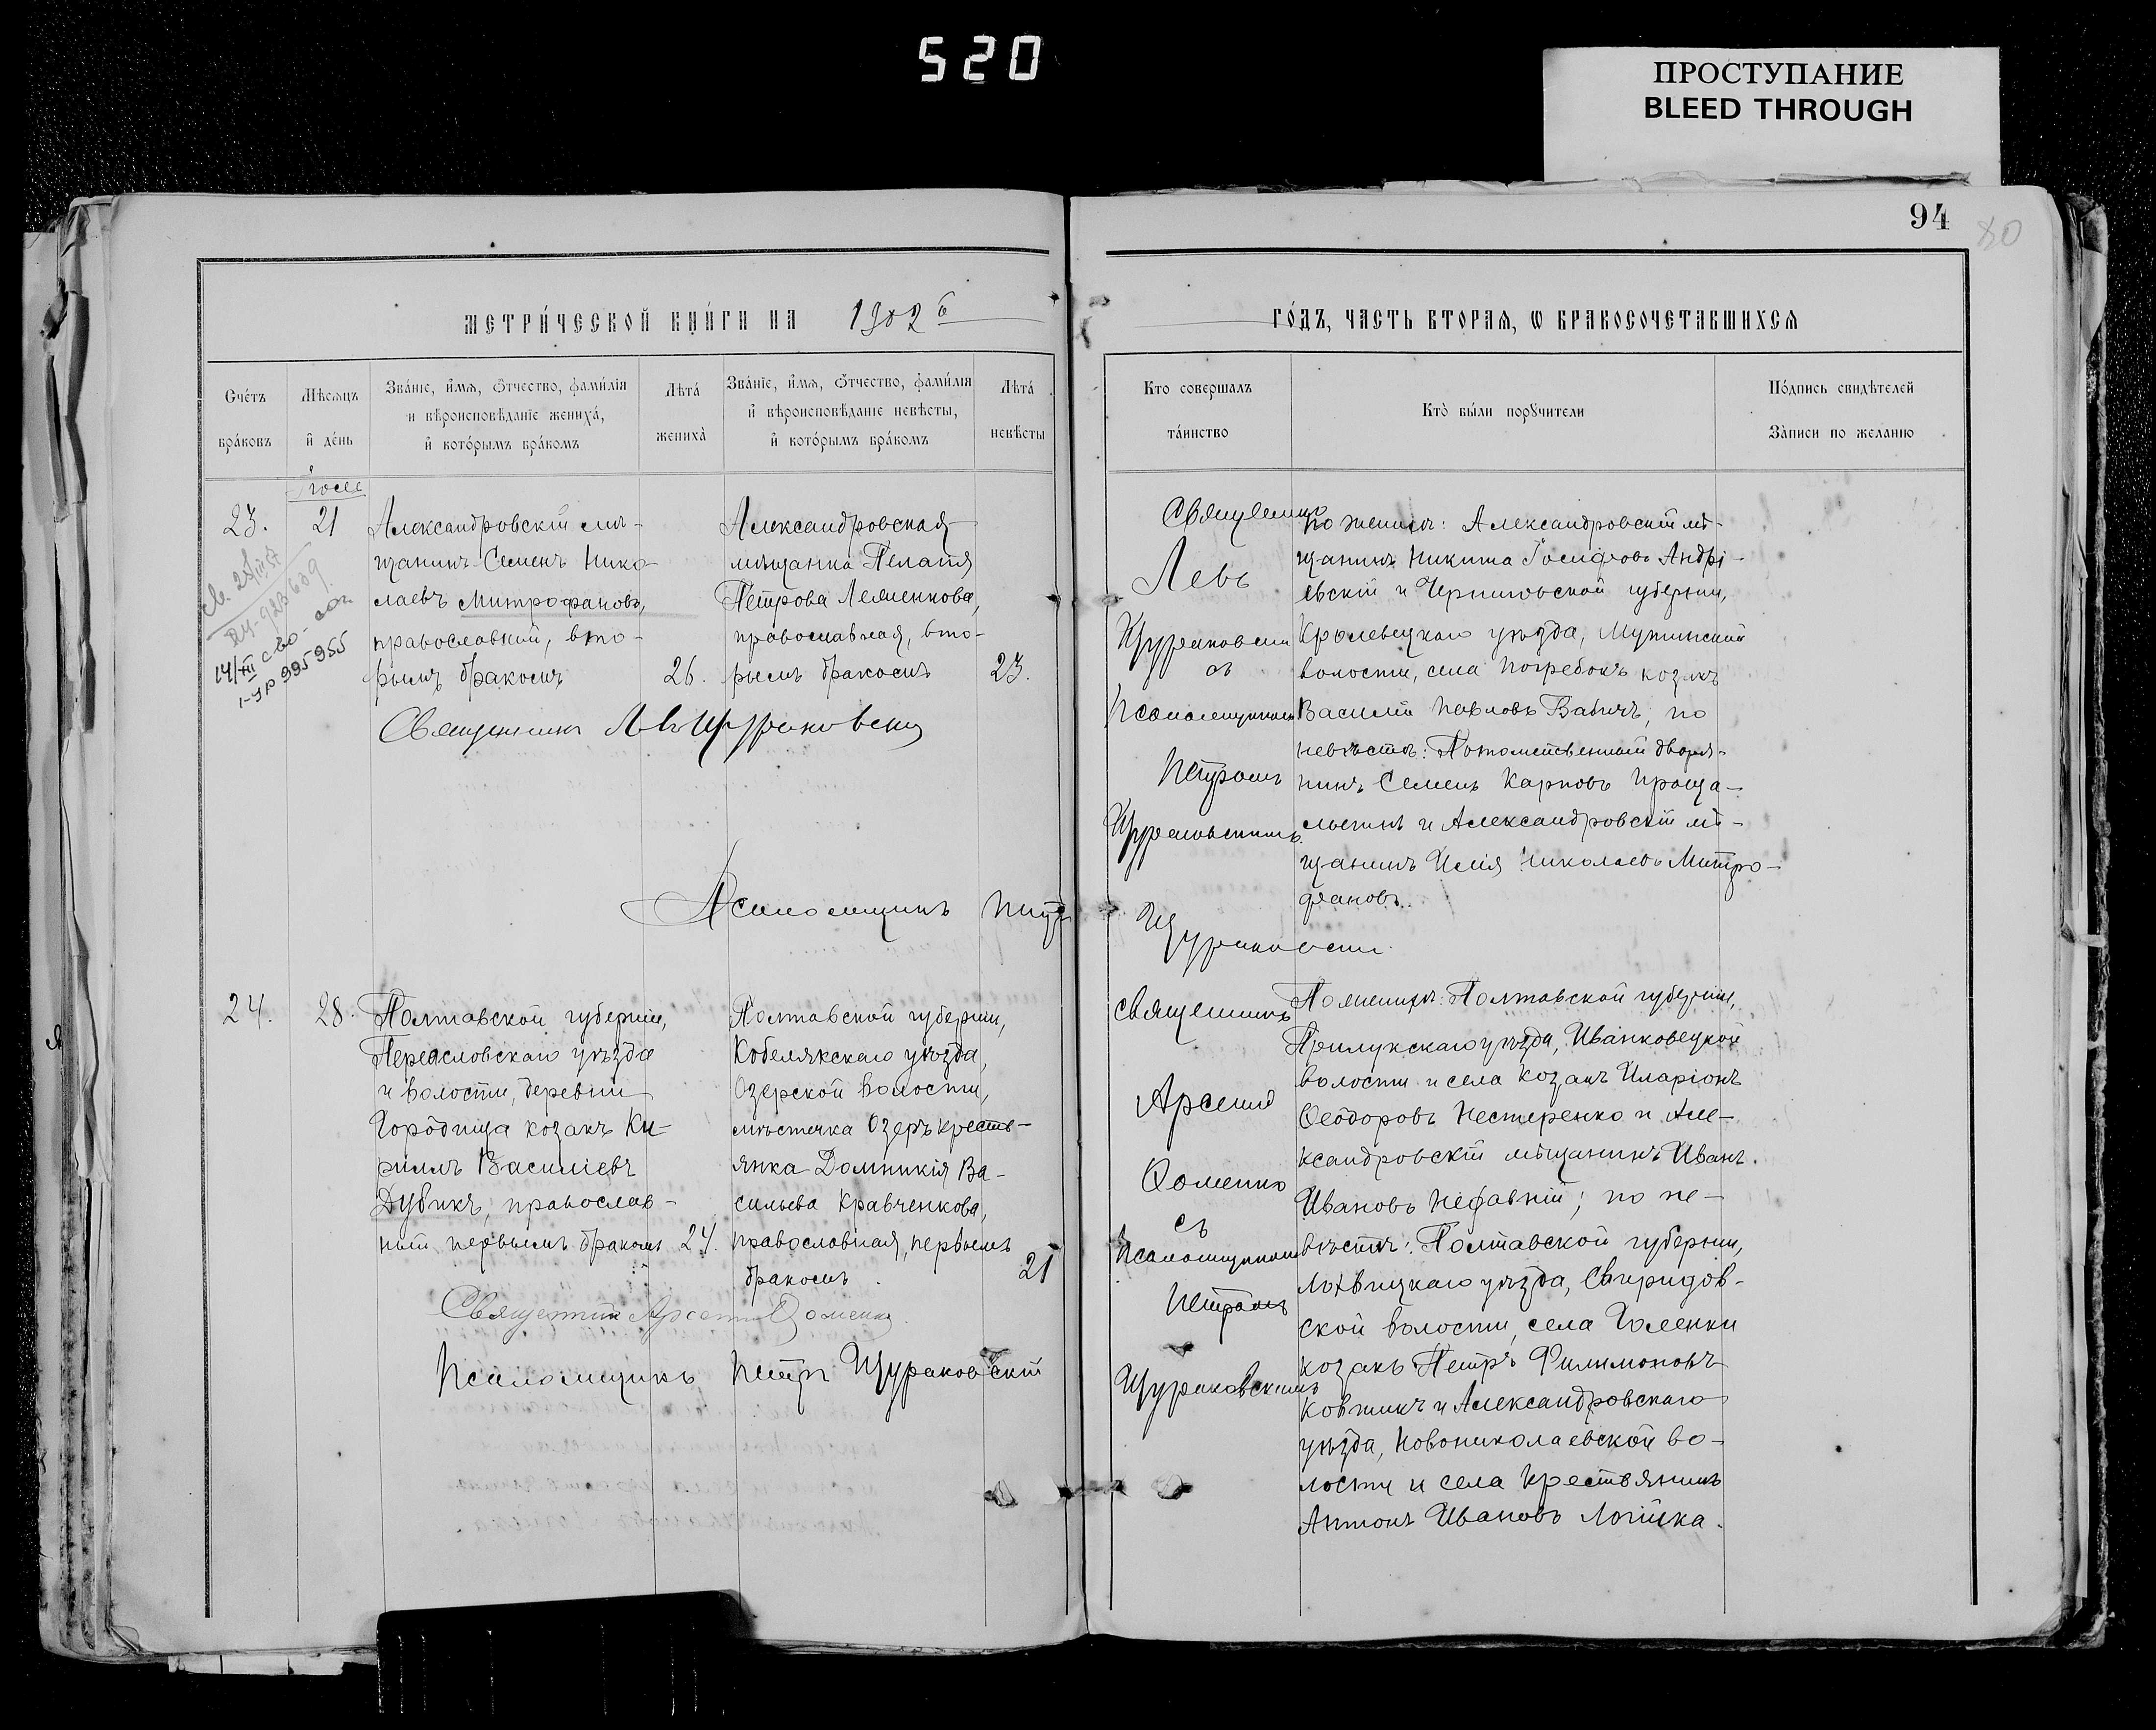 520
ПРОСТУПАНИЕ
BLEED THROUGH
94
80
МЕТРИ́ЧЕСКОЙ КНИ́ГИ НА 1902 й
ГО́ДЪ, ЧАСТЬ ВТОРАѦ, Ѡ БРАКОСОЧЕТАВШИХСѦ
Сче́тъ
бра́ковъ
Мѣсѧцъ
и҆ де́нь
Зва́нїе, и҆́мѧ, ѻ҆́тчество, фами́лїѧ
и вѣроисповѣданїе жениха́,
и҆ кото́рымъ бра́комъ
Лѣта́
жениха̀
Зва́нїе, и҆́мѧ, ѻ҆́тчество, фами́лїѧ
и҆ вѣроисповѣданїе невѣсты,
и҆ кото́рымъ бра́комъ
Лѣта́
невѣсты
Кто совершалъ
та́инство
Кто̀ бы́ли порꙋчители
По́дпись свидѣтелей
За̀писи по желанїю
23.
21
Александровскій мѣ-
щанинъ Семенъ Нико-
лаевъ Митрофановъ,
православный, вто-
рымъ бракомъ
26.
Александровская
мѣщанка Пелагія
Петрова Лемешкова,
православная, вто-
рымъ бракомъ
23.
14/XII
995955
Священникъ
Левъ
Щураковскій
съ
Псаломщикомъ
Петромъ
Щураковскимъ.
По женихѣ: Александровскій мѣ-
щанинъ Никита Іосифовъ Андрі-
евскій и Черниговской губерніи,
Кролевецкаго уѣзда, Мутинской
волости, села Погребокъ козакъ
Василій Павловъ Бабичъ, по
невѣстѣ: Потомственный дворя-
нинъ Семенъ Карповъ
и Александровскій мѣ-
щанинъ Илія Николаевъ Митро-
фановъ.
Священникъ Левъ Щураковскій
Псаломщикъ Петръ
Щураковскій.
24.
28.
Полтавской губерніи,
Переясловскаго уѣзда
и волости, деревни
Городища козакъ Ки-
риллъ Василіевъ
Дубикъ, православ-
ный первымъ бракомъ
24.
Полтавской губерніи,
Кобелякскаго уѣзда,
Озерской волости,
мѣстечка Озеръ кресть-
янка Домникія Ва-
сильева Кравченкова,
православная, первымъ
бракомъ.
21
Священникъ
Арсеній
Ѳоменко
съ
Псаломщикомъ
Петромъ
Щураковскимъ
По женихѣ: Полтавской губерніи,
Прилукскаго уѣзда, Иванковецкой
волости и села козакъ Иларіонъ
Ѳеодоровъ Нестеренко и Але-
ксандровскій мѣщанинъ Иванъ
Ивановъ; по не-
вѣстѣ: Полтавской губерніи,
Лохвицкаго уѣзда, Свиридов-
ской волости, села Голенки
козакъ Петръ Филимоновъ
Ковтикъ и Александровскаго
уѣзда, Новониколаевской во-
лости и села крестьянинъ
Антонъ Ивановъ
Священникъ Арсеній Ѳоменко.
Псаломщикъ Петръ Щураковскій